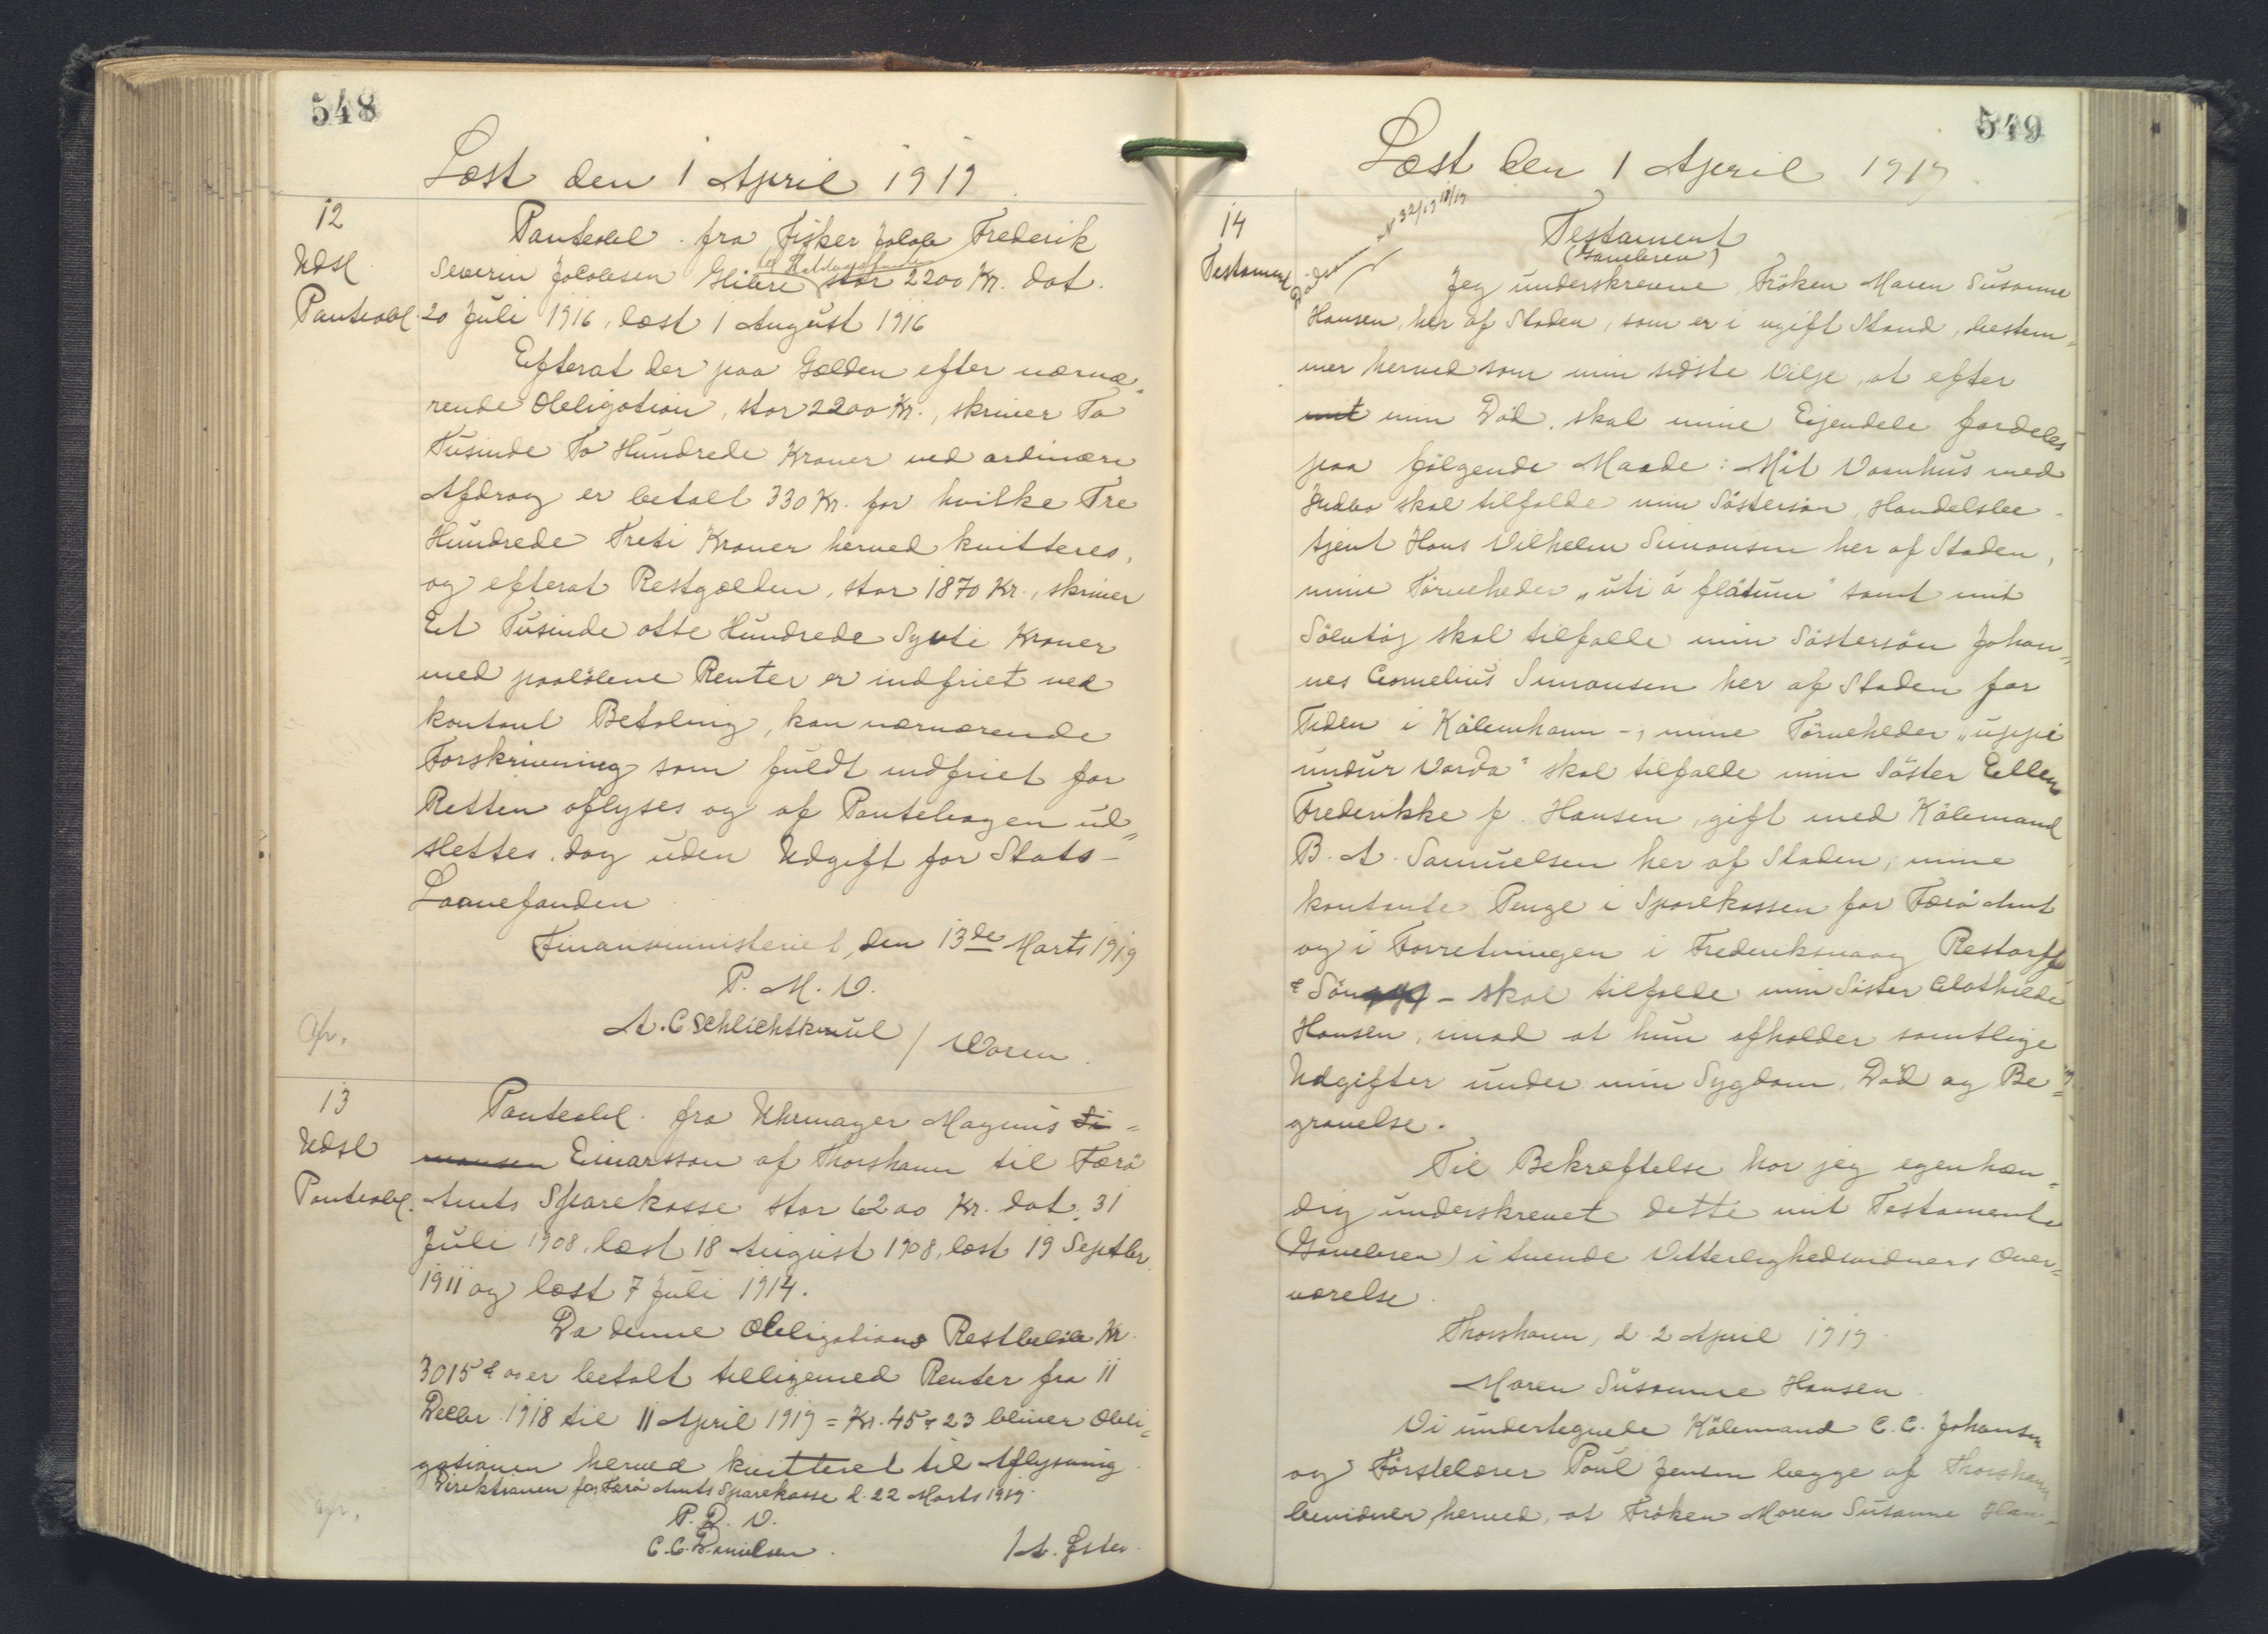 548
Læst den 1 April 1919
12
Udsl.
Panteobl.
Panteobl. fra Fisker Jakob Frederik
Severin Jacobsen Glibre stor 2200 Kr. dat.
20 Juli 1916, læst 1 August 1916
Efterat der paa Gælden efter nærvæ„
rende Obligation, stor 2200 Kr., skriver To
Tusinde To Hundrede Kroner ved ordinære
Afdrag er betalt 330 Kr. for hvilke Tre
Hundrede Treti Kroner herved kvitteres,
og efterat Restgælden, stor 1870 Kr., skriver
Et Tusinde otte Hundrede Syvti Kroner
med paaløbne Renter er indfriet ved
kontant Betaling, kan nærværende
Forskrivning som fuldt indfriet for
Retten aflyses og af Pantebogen ud„
slettes, dog uden Udgift for Stats-
Laanefonden
Finansministeriet, den 13de Marts 1919
P. M. V.
A. C Schlichtkrull / Woren.
13
Udsl
Panteobl.
Panteobl. fra Uhrmager Magnus Si=
monsen Einarsson af Thorshavn til Færö
Amts Sparekasse stor 6200 Kr. dat. 31
Juli 1908, læst 18 August 1908, læst 19 Septbr.
1911 og læst 7 Juli 1914.
Da denne Obligations Restbeløb Kr.
3015 er betalt tilligemed Renter fra 11
Decbr 1918 til 11 April 1919 = Kr. 45 23 bliver Obli„
gationen herved kvitteret til Aflysning.
Direktionen for Færö Amts Sparekasse d. 22 Marts 1919.
P. D. V.
C. C. Danielsen. / A. Öster.
549
Læst den 1 April 1919
14
Testament
Testament
(Gavebrev)
Jeg underskrevne Fröken Maren Susanne
Hansen, her af Staden, som er i ugift Stand, bestem„
mer herved som min sidste Vilje, at efter
mit min Död, skal mine Ejendele fordeles
paa fölgende Maade: Mit Vaanhus med
Indbo skal tilfalde min Söstersön, Handelsbe-
tjent Hans Vilhelm Simonsen her af Staden,
mine Törveheder „úti á flátum" samt mit
Sölvtöj skal tilfalde min Söstersön Johan„
nes Cornelius Simonsen her af Staden for
Tiden i Köbenhavn -, mine Törveheder „uppi
undur Varda" skal tilfalde min Söster Ellen
Frederikke f. Hansen, gift med Köbmand
B. A. Samuelsen her af Staden, mine
kontante Penge i Sparekassen for Færö Amt
og i Forretningen i Frederiksvaag Restorff
& Sön - skal tilfalde min Sister Clothilde
Hansen, imod at hun afholder samtlige
Udgifter under min Sygdom, Död og Be„
gravelse.
Til Bekræftelse har jeg egenhæn„
dig underskrevet dette mit Testamente
(Gavebrev) i tvende Vitterlighedsvidners Over„
værelse.
Thorshavn, d. 2 April 1919.
Maren Susanne Hansen.
Vi undertegnede Köbmand C. C. Johansen
og Förstelærer Poul Jensen begge af Thorshavn
bevidner herved, at Fröken Maren Susanne Han-